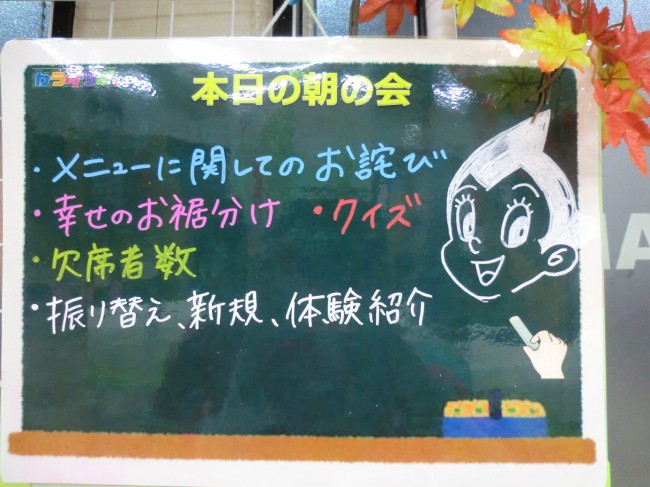 本日の朝の会
・メニューに関してのお詫び
・幸せのお裾分け ・クイズ
・欠席者数
・振り替え、新規、体験紹介
MA